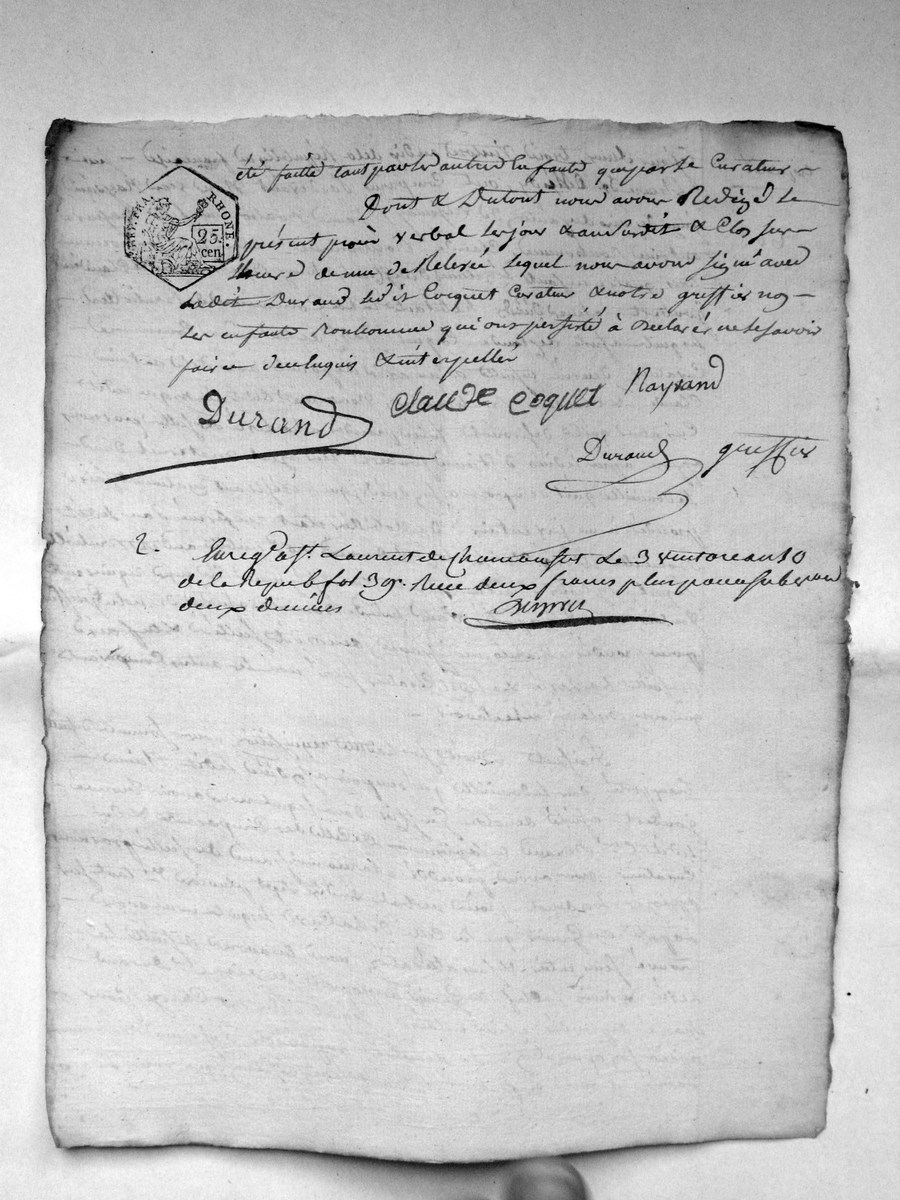 REP. FRA. RHONE.
25 cen
été faitte tant par les autres Enfants que par le Curateur
Dont & Dutout nous avons Redigé le
présent procès verbal les jour & an susdit & Clos sur
l'heure de une de Relevée lequel nous avons signé avec
ledit Durand led it Cocquet Curateur & notre greffier non
les enfants Bonhomme qui ont persisté à Declarer ne le savoir
faire de ce Enquis & interpellés
Durand Claude Coquet Raynand
Durand greffier
2. Enreg. à St. Laurent de Chamousset Le 3 ventose an 10
de la Repub. fol 39. Recu deux francs plus pour subvon
deux decimes